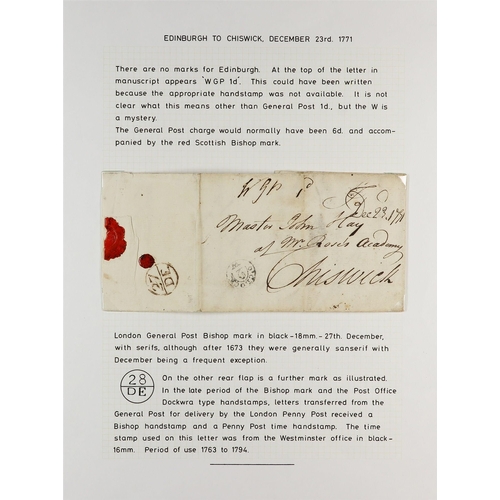 EDINBURGH TO CHISWICK, DECEMBER 23rd. 1771
There are no marks for Edinburgh. At the top of the letter in
manuscript appears 'WGP 1d'. This could have been written
because the appropriate handstamp was not available. It is not
clear what this means other than General Post 1d., but the W is
a mystery.
The General Post charge would normally have been 6d. and accom-
panied by the red Scottish Bishop mark.
WGP 1d
Dec 23, 1771
Master John Hay
at Mr Rose's Academy
Chiswick
London General Post Bishop mark in black-18mm.-27th. December,
with serifs, although after 1673 they were generally sanserif with
December being a frequent exception.
28
DE
On the other rear flap is a further mark as illustrated.
In the late period of the Bishop mark and the Post Office
Dockwra type handstamps, letters transferred from the
General Post for delivery by the London Penny Post received a
Bishop handstamp and a Penny Post time handstamp. The time
stamp used on this letter was from the Westminster office in black-
16mm. Period of use 1763 to 1794.